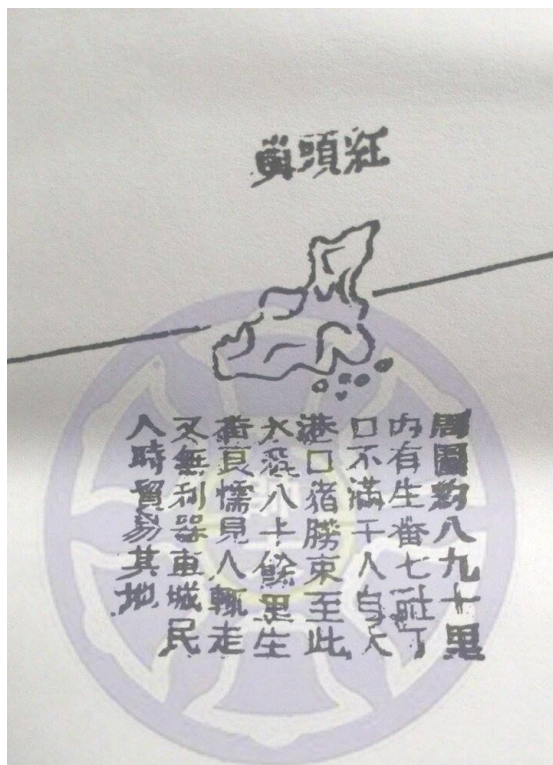 紅頭嶼
周圍約八九十里
內有生番七社丁
口不滿千人自大
港口猪勝束至此
水程八十餘里生
番良懦見人輒走
又無利器車城民
人時貿易其地